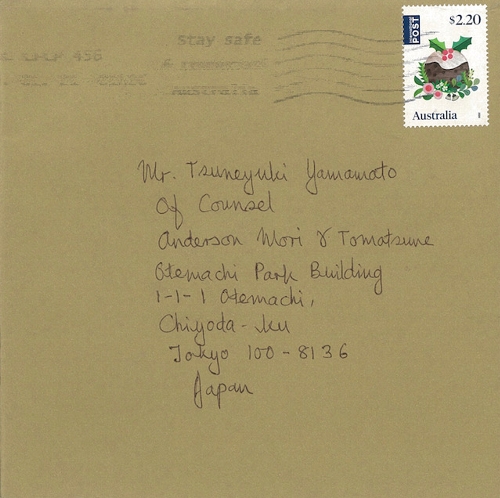 Stay safe
Australia
POST
$2.20
Australia
Mr. Tsuneyuki Yamamoto
Of Counsel
Anderson Mori & Tomatsune
Otemachi Park Building
1-1-1 Otemachi,
Chiyoda-ku
Tokyo 100-8136
Japan